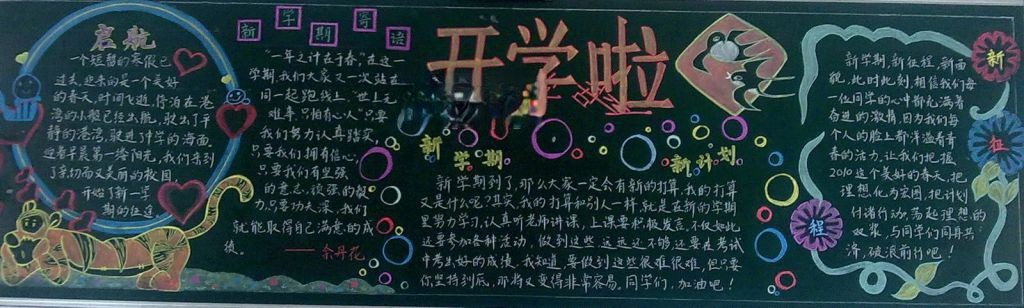 启航
一个短暂的寒假已
过去迎来的是一个美好
的春天,时间飞逝,停泊在港
湾的小船已经出航,驶出了平
静的港湾,驶进了中学的海面,
迎着早晨第一络阳光,我们来到
了亲切而又美丽的校园,
开始了新一学
期的征途
新学期寄语
“一年之计在于春,”在这一
学期,我们大家又一次站在
同一起跑线上,“世上无
难事,只怕有心人”只要
我们努力认真踏实,
只要我们拥有信心,
只要我们有坚强
的意志,顽强的毅
力,只要功夫深,我们
就能取得自己满意的成
绩。
——余丹花
开学啦
新学期
新计划
新学期到了,那么大家一定会有新的打算,我的打算
又是什么呢?其实,我的打算和别人一样,就是在新的学期
里努力学习,认真听老师讲课,上课要积极发言,不仅如此
还要参加各种活动,做到这些远远还不够,还要在考试
中考出好的成绩,我知道,要做到这些很难很难,但只要
你坚持到底,那将又变得非常容易。同学们,加油吧!
新学期,新征程,新面
貌,此时此刻,相信我们每
一位同学的心中都充满着
奋进的激情,因为我们每
个人的脸上都洋溢着青
春的活力,让我们把握
2010这个美好的春天,把
理想化为宏图,把计划
付诸行动,荡起理想的
双桨,与同学们同舟共
济,破浪前行吧!
新
征
程